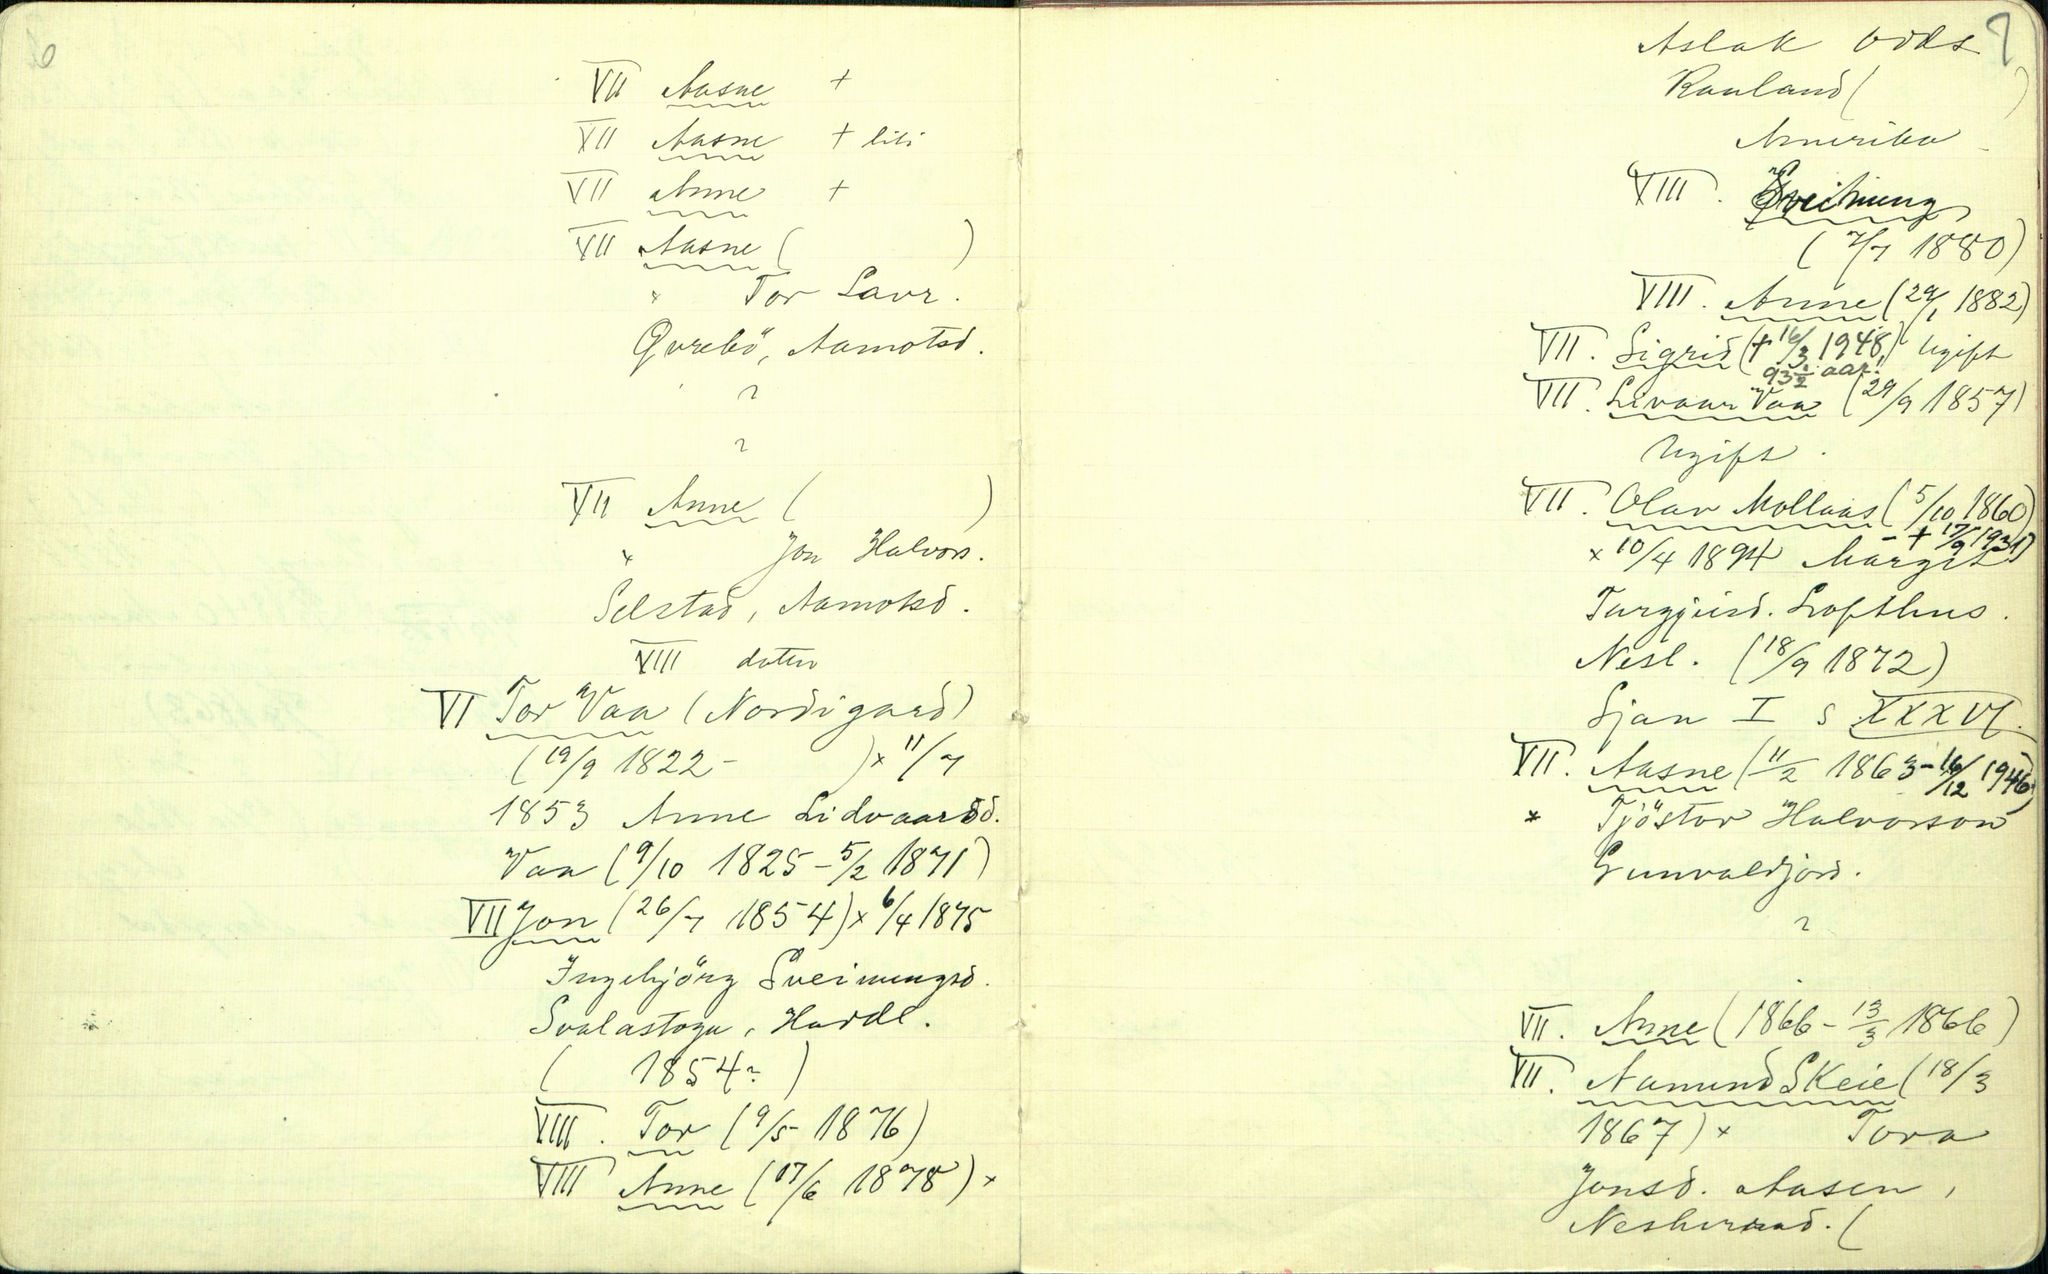 6
VII Aasne +
VII Aasne + liti
VII Anne +
VII Aasne ( )
" Tor Lavr.
Qvrebö, Aamotsd.
?
?
VII Anne ( )
" Jon Halvors.
Selstad, Aamotsd.
VIII doter
VI Tor Vaa (Nordigard)
(19/9 1822 - ) × 11/7
1853 Anne Lidvaarsd.
Vaa (9/10 1825 - 5/2 1871)
VII Jon (26/7 1854) × 6/4 1875
Ingebjörg Sveinungsd.
Svalastoga, Hovdl.
( 1854? )
VIII. Tor (9/5 1876)
VIII Anne (17/6 1878) ×
7
Aslak Odds
Rauland ( )
Amerika
VIII. Sveinung
(7/7 1880)
VIII. Anne (29/1 1882)
VII. Sigrid († 16/3 1948, 93 1/2 aar!) Ugift
VII. Livaar Vaa (29/9 1857)
Ugift.
VII. Olav Mollaas (5/10 1860
- † 17/9 1931)
× 10/4 1894 Margit
Turgjusd. Lofthus.
Nesl. (18/9 1872)
Sjaa I s XXXVI.
VII. Aasne (11/2 1863 - 16/12 1946)
× Tjöstov Halvorson
Gunvaldjord.
?
VII. Anne (1866 - 13/3 1866)
VII. Aamund Skeie (18/3
1867) × Tora
Jonsd. Aasen,
Nesherad. (